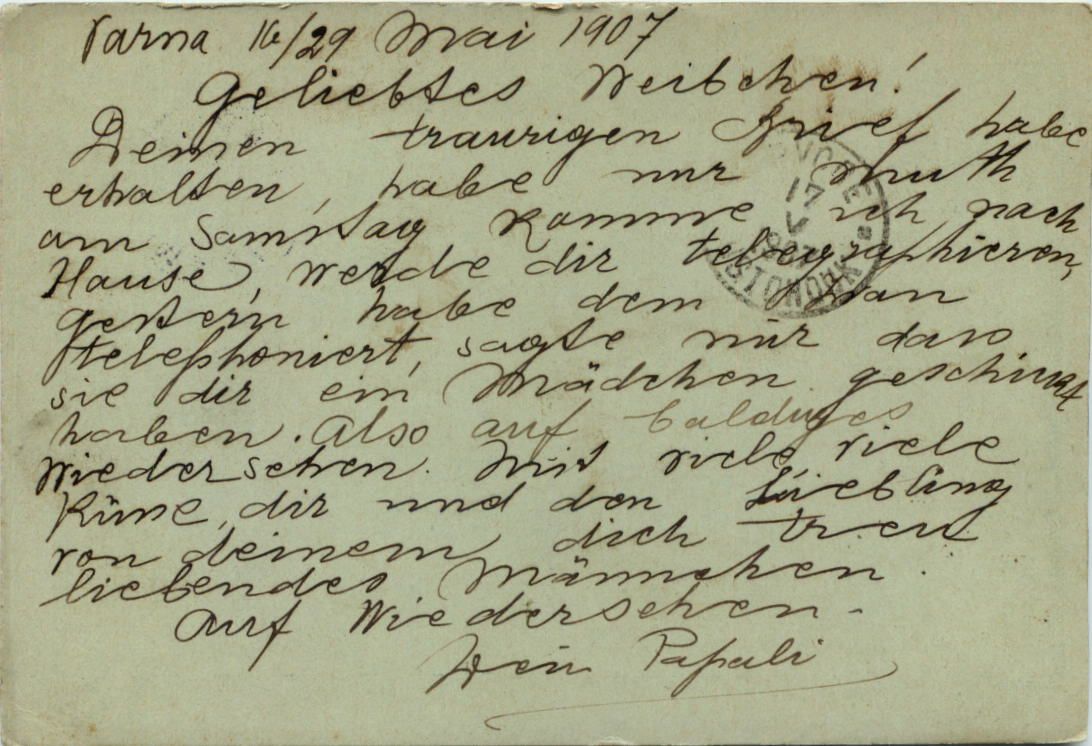 Varna 16/29 Mai 1907
Geliebtes Weibchen!
Deinen traurigen Brief habe
erhalten, habe nur Muth
am Samstag komme ich nach
Hause, werde dir telegraphieren,
gestern habe dem
telephoniert, sagte mir dass
sie dir ein Mädchen geschickt
haben. Also auf baldiges
Wiedersehen. Mit viele, viele
Küsse, dir und den Liebling
von deinem, dich treu
liebendes Männchen.
Auf Wiedersehen.
Dein Papali
17
V